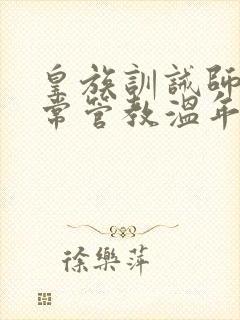 皇族訓誡師
常管教溫年
徐樂萍